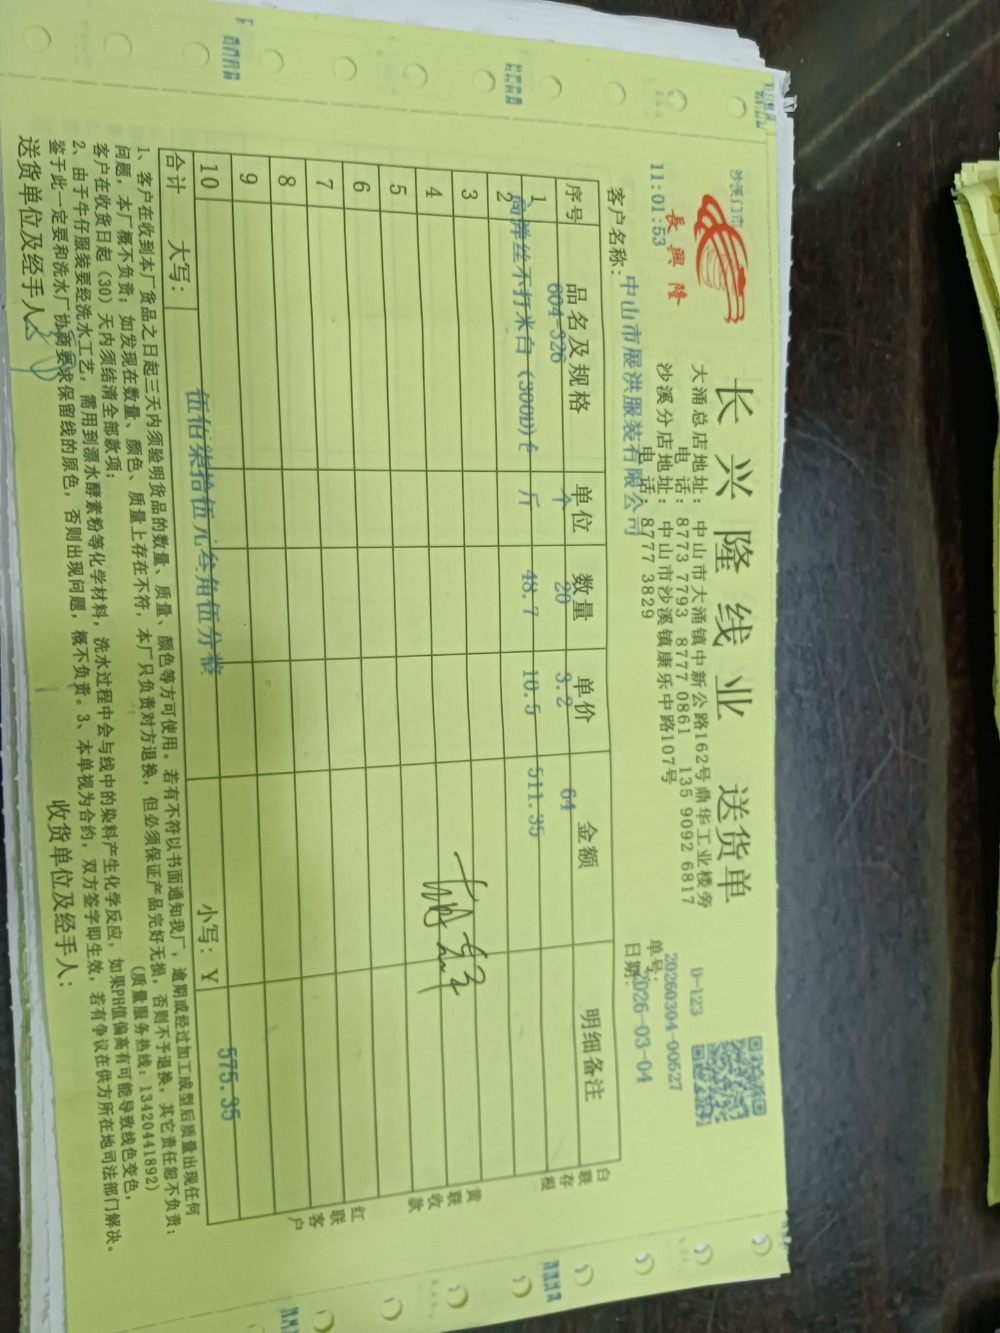 沙溪门市
長興隆
长兴隆线业 送货单
大涌总店地址: 中山市大涌镇中新公路162号鼎华工业楼旁
电 话: 8773 7793 8777 0861 135 9092 6817
沙溪分店地址: 中山市沙溪镇康乐中路107号
电 话: 8777 3829
11:01:53
D-123
单号: 20260304-00527
日期: 2026-03-04
客户名称: 中山市展洪服装有限公司
序号 品名及规格 单位 数量 单价 金额 明细备注
1 604-326 个 20 3.2 64
2 高弹丝不打米白(300D)仓 斤 48.7 10.5 511.35
3
4
5
6
7
8
9
10
合计 大写: 伍佰柒拾伍元叁角伍分整 小写: Y 575.35
白联存根
黄联收款
红联客户
1、客户在收到本厂货品之日起三天内须验明货品的数量、质量、颜色等方可使用。若有不符以书面通知我厂,逾期或经过加工成型后质量出现任何
问题,本厂概不负责;如发现在数量、颜色、质量上存在不符,本厂只负责对方退换,但必须保证产品完好无损,否则不予退换,其它责任恕不负责;
客户在收货日起(30)天内须结清全部款项; (质量服务热线:13420441892)
2、由于牛仔服装要经洗水工艺,需用到漂水酵素粉等化学材料,洗水过程中会与线中的染料产生化学反应,如果PH值偏高有可能导致线色变色,
鉴于此一定要和洗水厂协商要求保留线的原色,否则出现问题,概不负责。3、本单视为合约,双方签字即生效,若有争议在供方所在地司法部门解决。
送货单位及经手人: 收货单位及经手人: